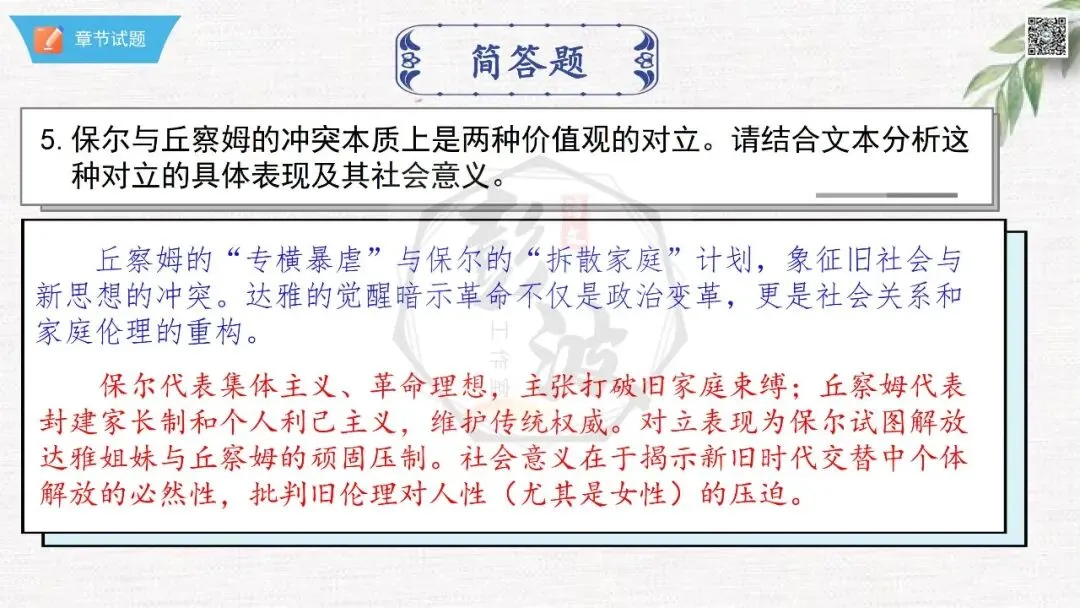 章节试题
简答题
5. 保尔与丘察姆的冲突本质上是两种价值观的对立。请结合文本分析这
种对立的具体表现及其社会意义。
丘察姆的“专横暴虐”与保尔的“拆散家庭”计划，象征旧社会与
新思想的冲突。达雅的觉醒暗示革命不仅是政治变革，更是社会关系和
家庭伦理的重构。
保尔代表集体主义、革命理想，主张打破旧家庭束缚；丘察姆代表
封建家长制和个人利己主义，维护传统权威。对立表现为保尔试图解放
达雅姐妹与丘察姆的顽固压制。社会意义在于揭示新旧时代交替中个体
解放的必然性，批判旧伦理对人性（尤其是女性）的压迫。
工作室